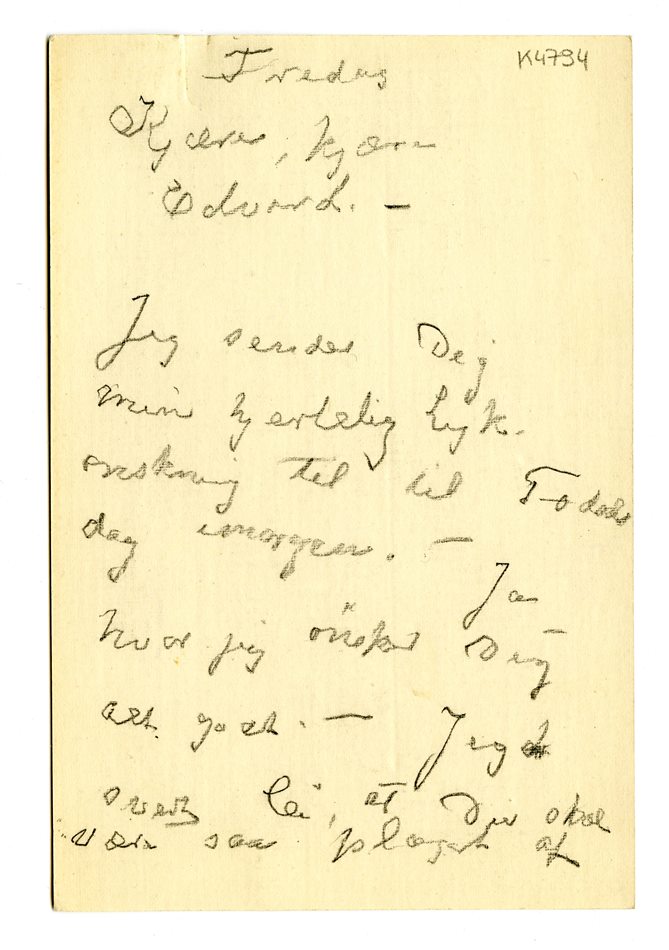 K4794
Fredag
Kjære, kjære
Edvard. –
Jeg sender Deg
min hjertelig Lyk-
ønskning til til Fødsels
dag imorgen. –
Ja
hvor jeg önsker Deg
alt godt. – Jeg er
svert lei, at Du skal
være saa plaget af